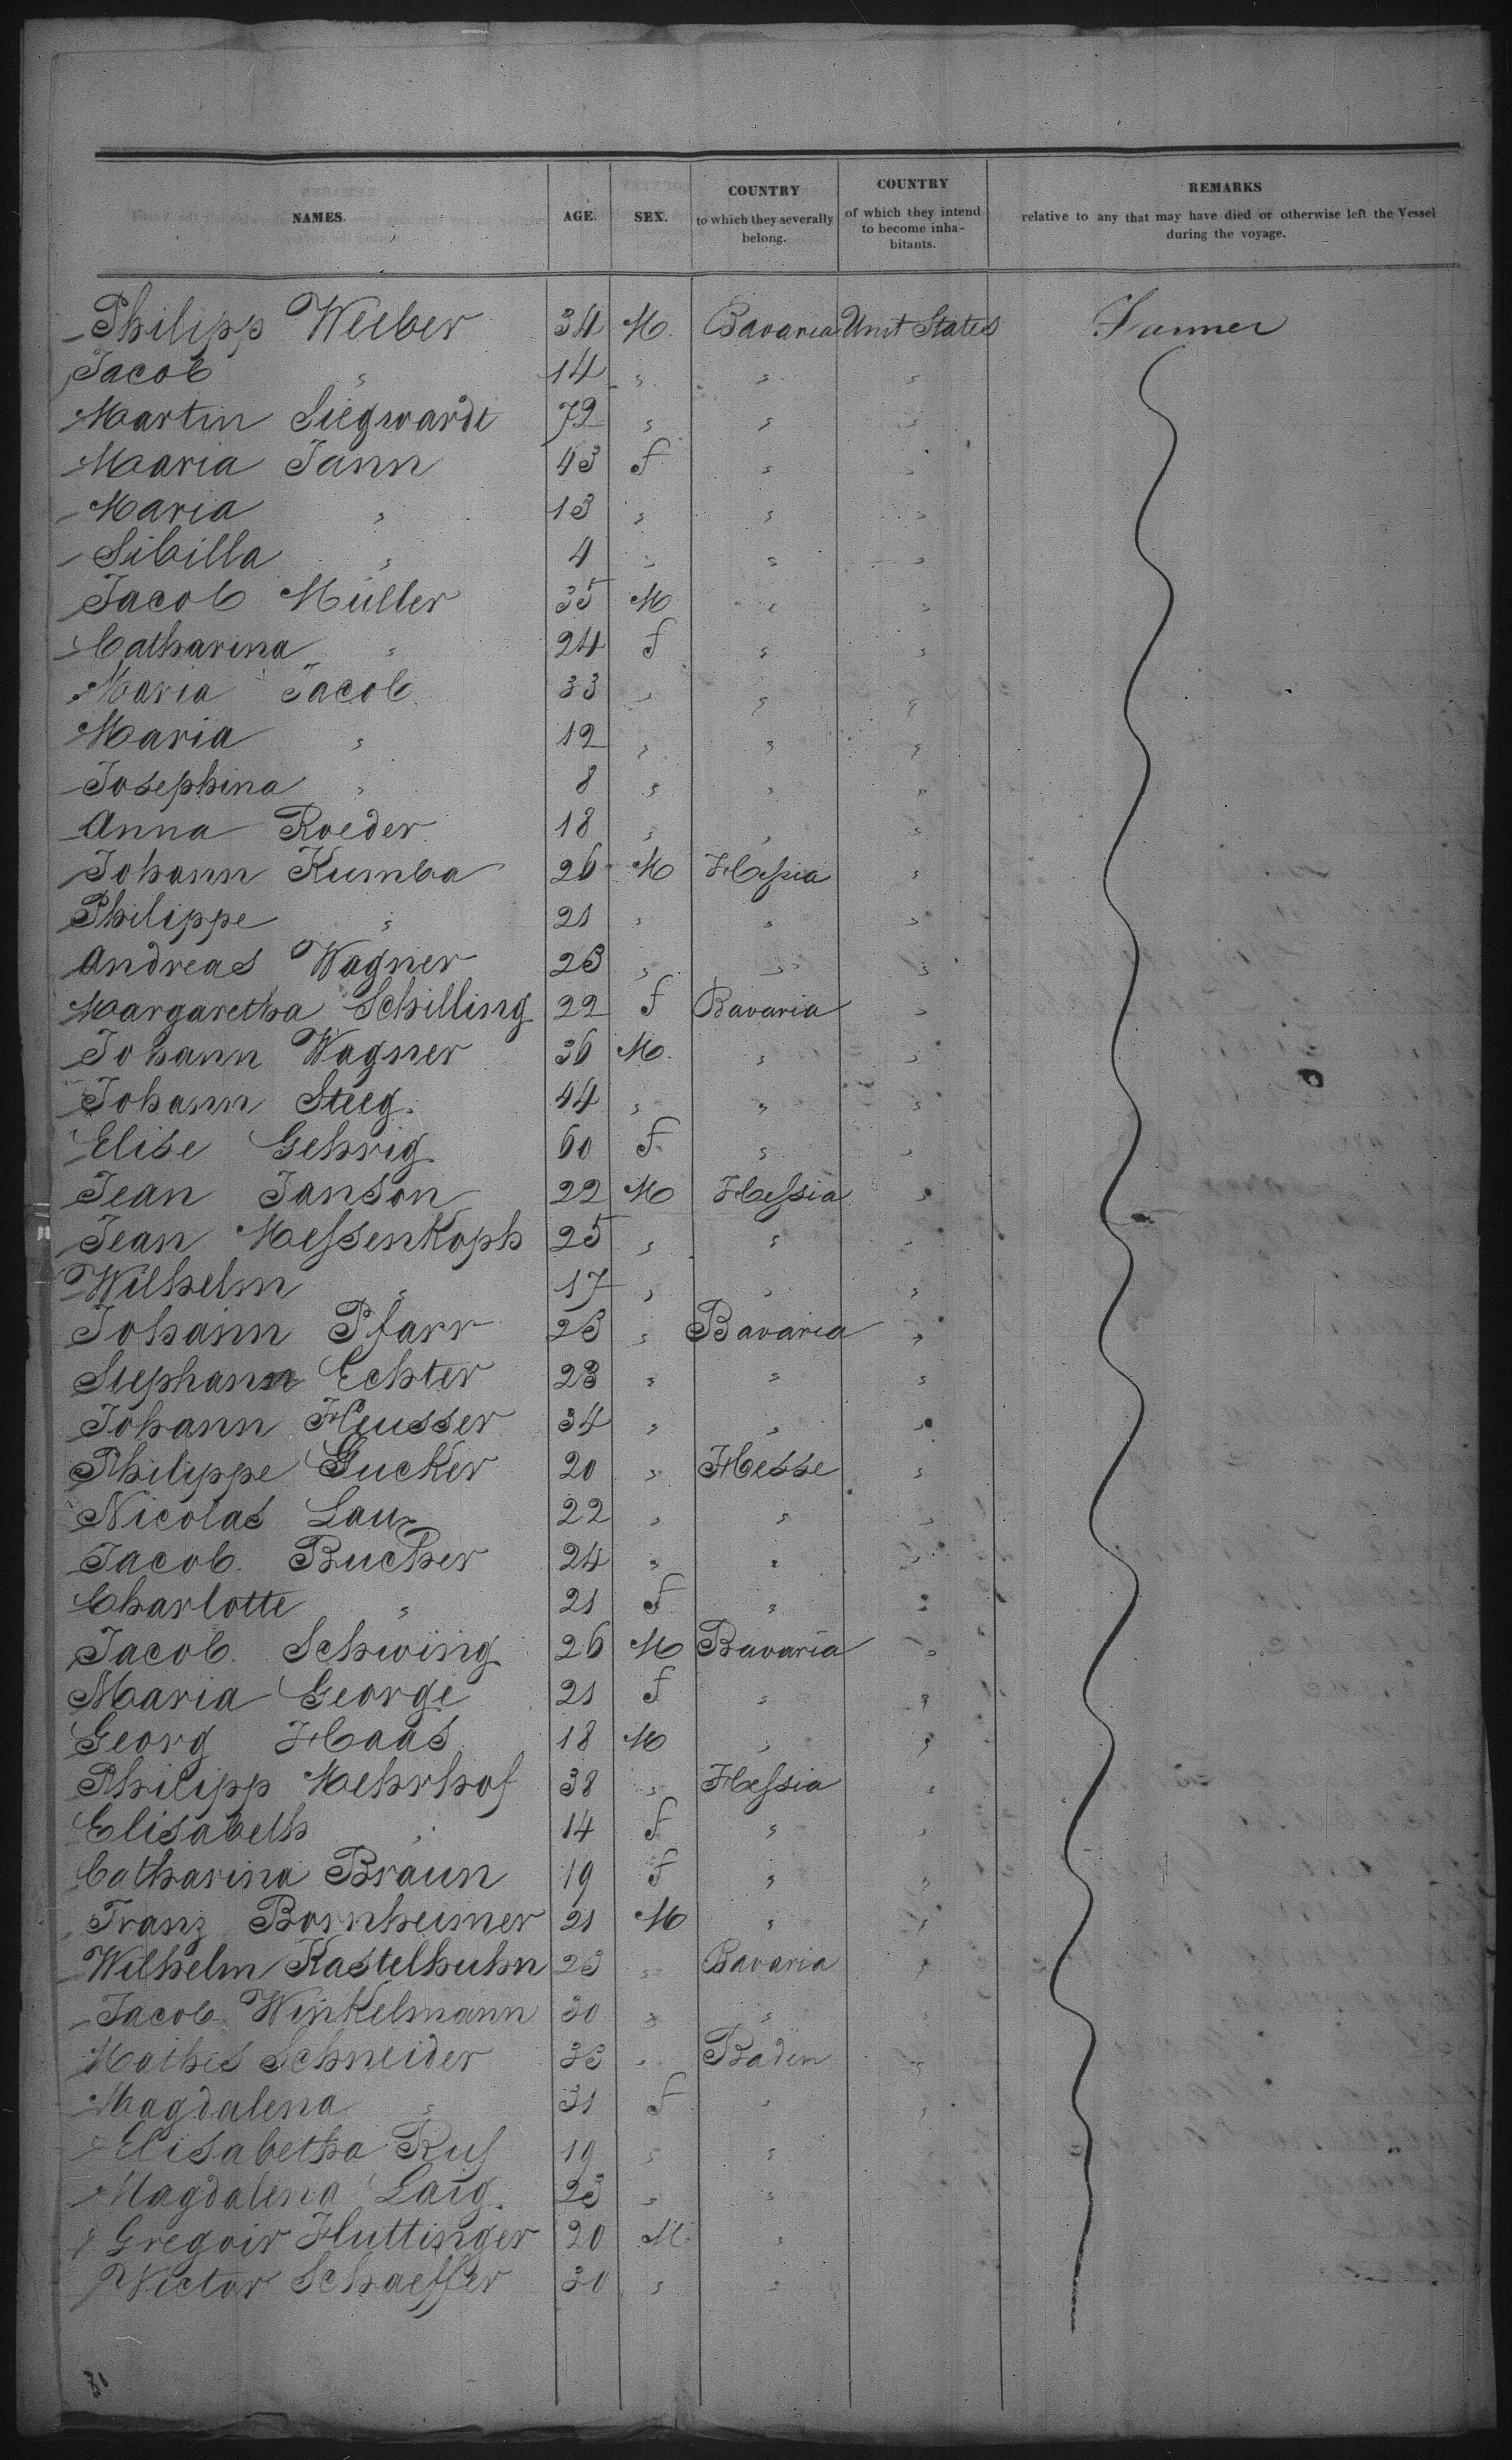 NAMES. AGE. SEX. COUNTRY to which they severally belong. COUNTRY of which they intend to become inhabitants. REMARKS relative to any that may have died or otherwise left the Vessel during the voyage.
Philipp Weeber 34 M. Bavaria Unit States Farmer
Jacob " 14 " " "
Martin Siegwardt 72 " " "
Maria Jann 43 f " "
Maria " 13 " " "
Sibilla " 4 " " "
Jacob Müller 35 M " "
Catharina " 24 f " "
Maria Jacob 33 " " "
Maria " 12 " " "
Josephina " 8 " " "
Anna Roeder 18 " " "
Johann Kumba 26 M Hessia "
Philippe " 21 " " "
Andreas Wagner 23 " " "
Margaretha Schilling 22 f Bavaria "
Johann Wagner 36 M. " "
Johann Steeg. 44 " " "
Elise Gehrig 60 f " "
Jean Janson 22 M Hessia "
Jean Messenkoph 25 " " "
Wilhelm " 17 " " "
Johann Pfarr 23 " Bavaria "
Stephann Echter 28 " " "
Johann Heusser 34 " " "
Philippe Gucker 20 " Hesse "
Nicolas Laux 22 " " "
Jacob. Bucher 24 " " "
Charlotte " 21 f " "
Jacob. Schwing 26 M Bavaria "
Maria George 21 f " "
Georg Haas 18 M " "
Philipp Mehrhof 38 " Hessia "
Elisabeth " 14 f " "
Catharina Braun 19 f " "
Franz Bornheimer 21 M " "
Wilhelm Kastelhuhn 23 " Bavaria "
Jacob Winkelmann 30 " " "
Mathes Schneider 33 " Baden "
Magdalena " 31 f " "
Elisabetha Ruf 19 " "
Magdalena Laig. 23 " "
Gregoir Huttinger 20 M "
Victor Schaeffer 30 " "